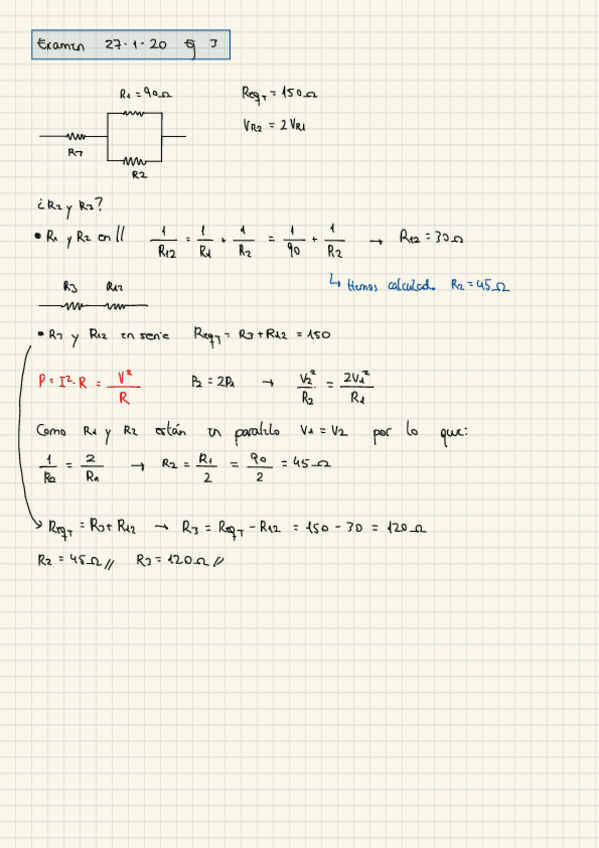 Examen 27-1-20 Ej 3
R1 = 90Ω
ReqT = 150Ω
VR2 = 2VR1
R3
R2
¿R2 y R3?
• R1 y R2 en // 1/R12 = 1/R1 + 1/R2 = 1/90 + 1/R2 → R12 = 30Ω
↳ Hemos calculado R2 = 45Ω
R3 R12
• R3 y R12 en serie ReqT = R3 + R12 = 150
P = I²·R = V²/R P2 = 2P1 → V2²/R2 = 2V1²/R1
Como R1 y R2 están en paralelo V1 = V2 por lo que:
1/R2 = 2/R1 → R2 = R1/2 = 90/2 = 45Ω
ReqT = R3 + R12 → R3 = ReqT - R12 = 150 - 30 = 120Ω
R2 = 45Ω // R3 = 120Ω //